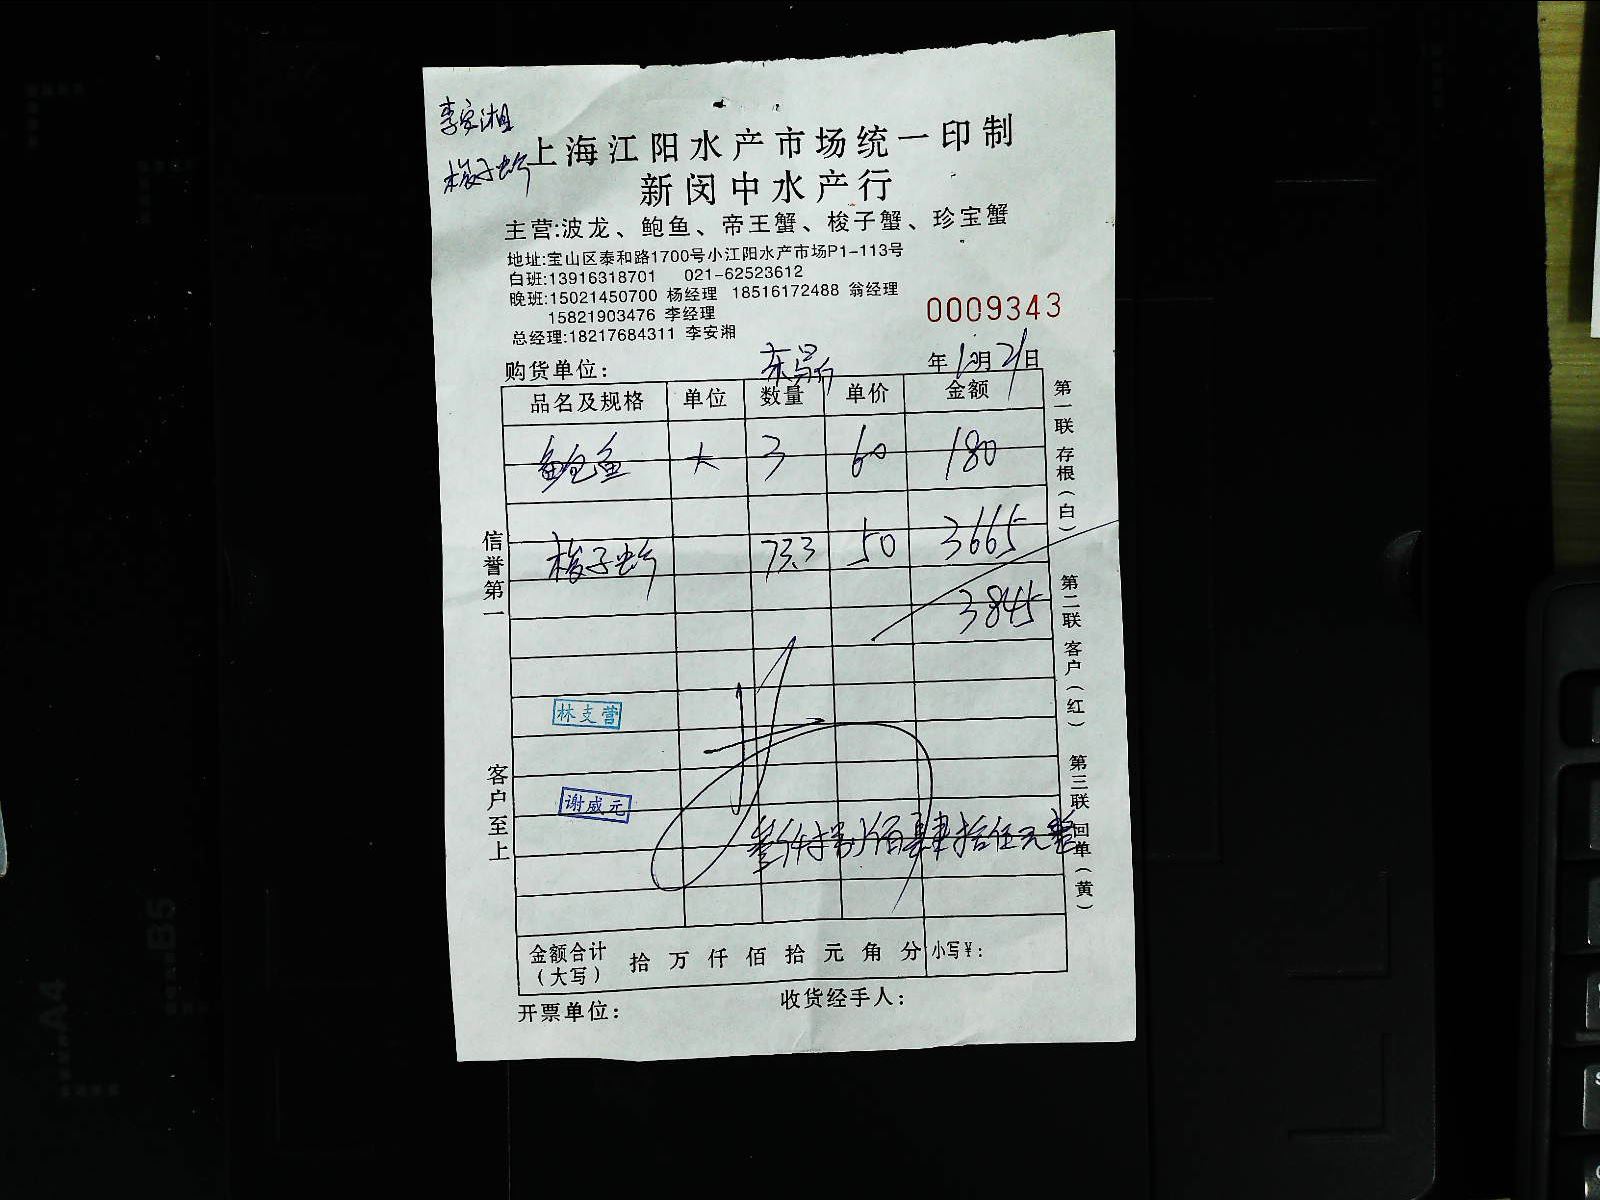 李安湘
梭子蟹
上海江阳水产市场统一印制
新闵中水产行
主营:波龙、鲍鱼、帝王蟹、梭子蟹、珍宝蟹
地址:宝山区泰和路1700号小江阳水产市场P1-113号
白班:13916318701 021-62523612
晚班:15021450700 杨经理 18516172488 翁经理
15821903476 李经理
总经理:18217684311 李安湘
0009343
购货单位: 年 月21日
品名及规格 单位 数量 单价 金额
鲍鱼 大 3 60 180
梭子蟹 73.3 50 3665
3845
林支营
谢威元
叁仟捌佰肆拾伍元整
金额合计(大写) 拾 万 仟 佰 拾 元 角 分 小写¥:
开票单位: 收货经手人:
信誉第一 客户至上
第一联 存根(白) 第二联 客户(红) 第三联 回单(黄)
B5
A4